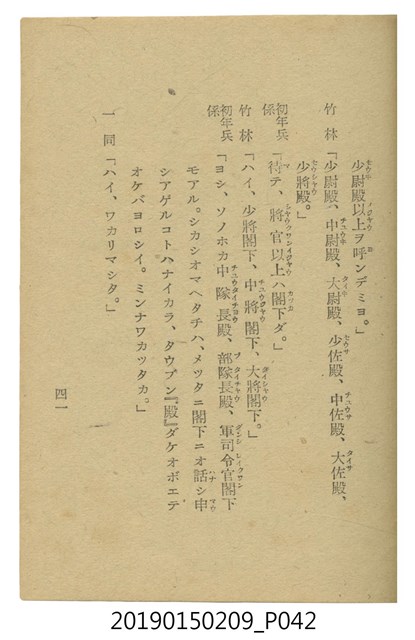 少尉殿以上ヲ呼ンデミヨ。」
竹林「少尉殿、中尉殿、大尉殿、少佐殿、中佐殿、大佐殿、
少將殿。」
初年兵係「待テ、將官以上ハ閣下ダ。」
竹林「ハイ、少將閣下、中將閣下、大將閣下。」
初年兵係「ヨシ、ソノホカ中隊長殿、部隊長殿、軍司令官閣下
モアル。シカシオマヘタチハ、メッタニ閣下ニオ話シ申
シアゲルコトハナイカラ、タウブン『殿』ダケオボエテ
オケバヨロシイ。ミンナワカッタカ。」
一同「ハイ、ワカリマシタ。」
四一
20190150209_P042